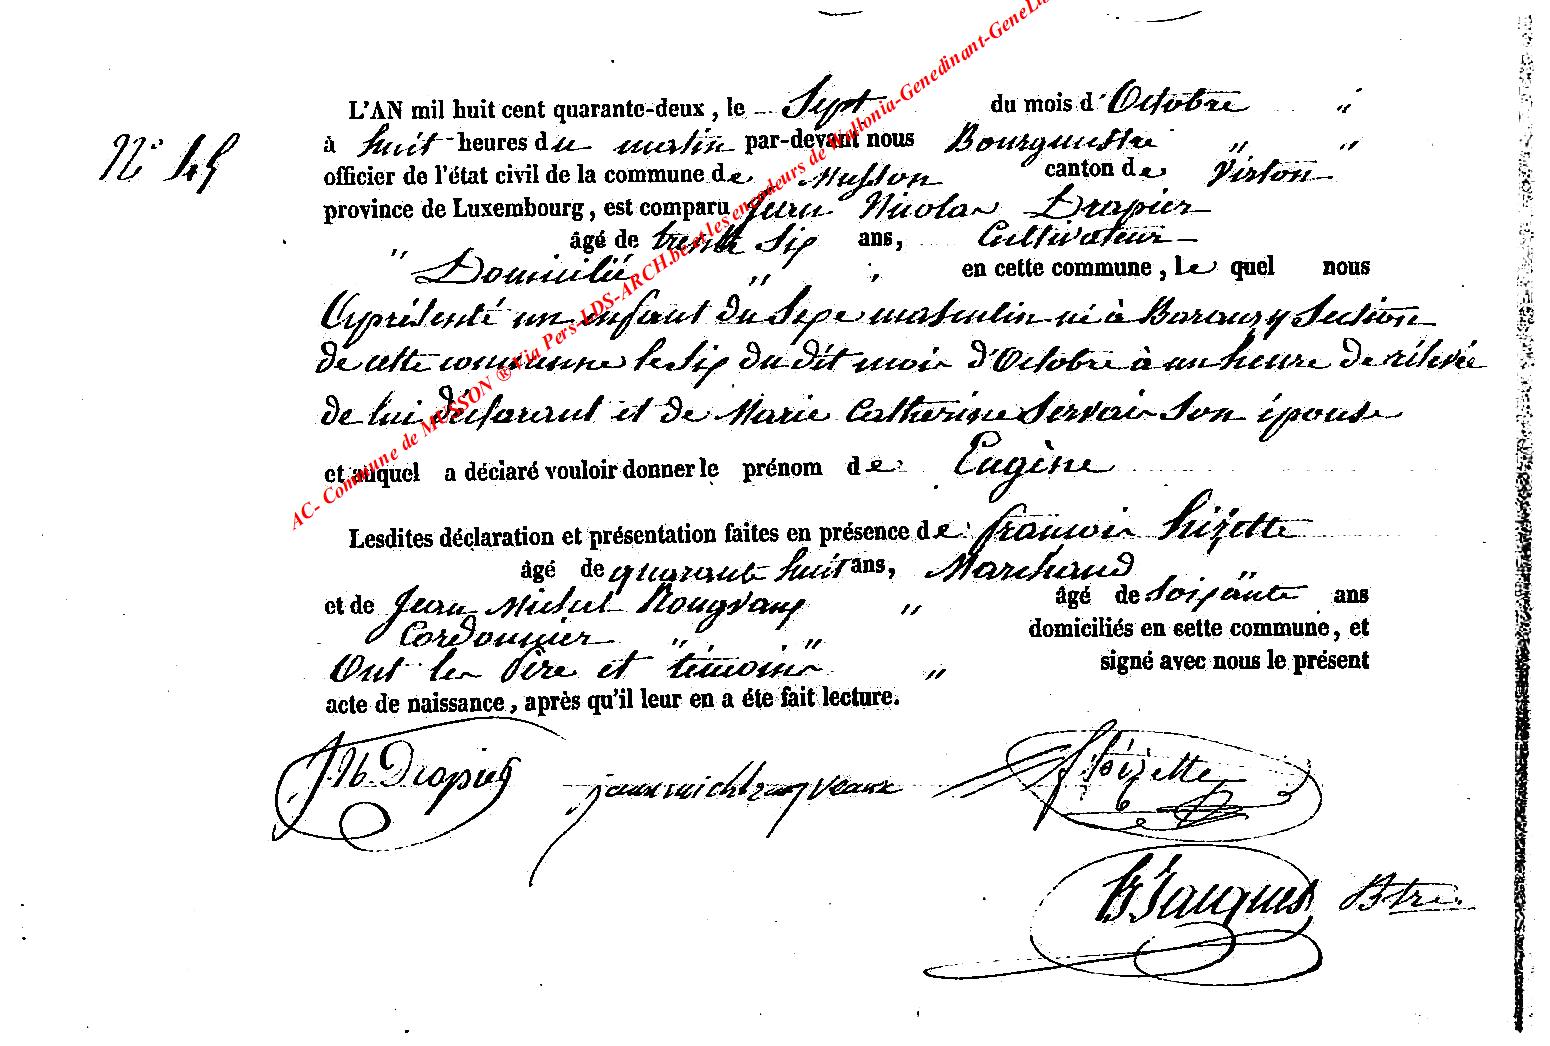 L'AN mil huit cent quarante-deux, le Sept du mois d'Octobre "
N° 45
à huit heures du matin par-devant nous Bourgmestre " "
officier de l'état civil de la commune de Musson canton de Virton
province de Luxembourg, est comparu Jean Nicolas Drapier
" âgé de trente Six ans, Cultivateur
Domicilié " " en cette commune, le quel nous
a présenté un enfant du Sexe masculin né à Baranzy Section
de cette commune le Six du dit mois d'Octobre à un heure de rélevée
de lui déclarant et de Marie Catherine Servais Son épouse
et auquel a déclaré vouloir donner le prénom de Eugène
Lesdites déclaration et présentation faites en présence de françois hizette
âgé de quarante huit ans, Marchand
et de Jean Michel Rougvaux " âgé de Soixante ans
Cordonnier " " domiciliés en cette commune, et
Ont les Père et témoins " signé avec nous le présent
acte de naissance, après qu'il leur en a éte fait lecture.
JN Drapier
hizette
Jacques Btre.
AC- Commune de MUSSON ® Via Pers-LDS-ARCH.be et les encodeurs de Wallonia-Genedinant-GeneLi